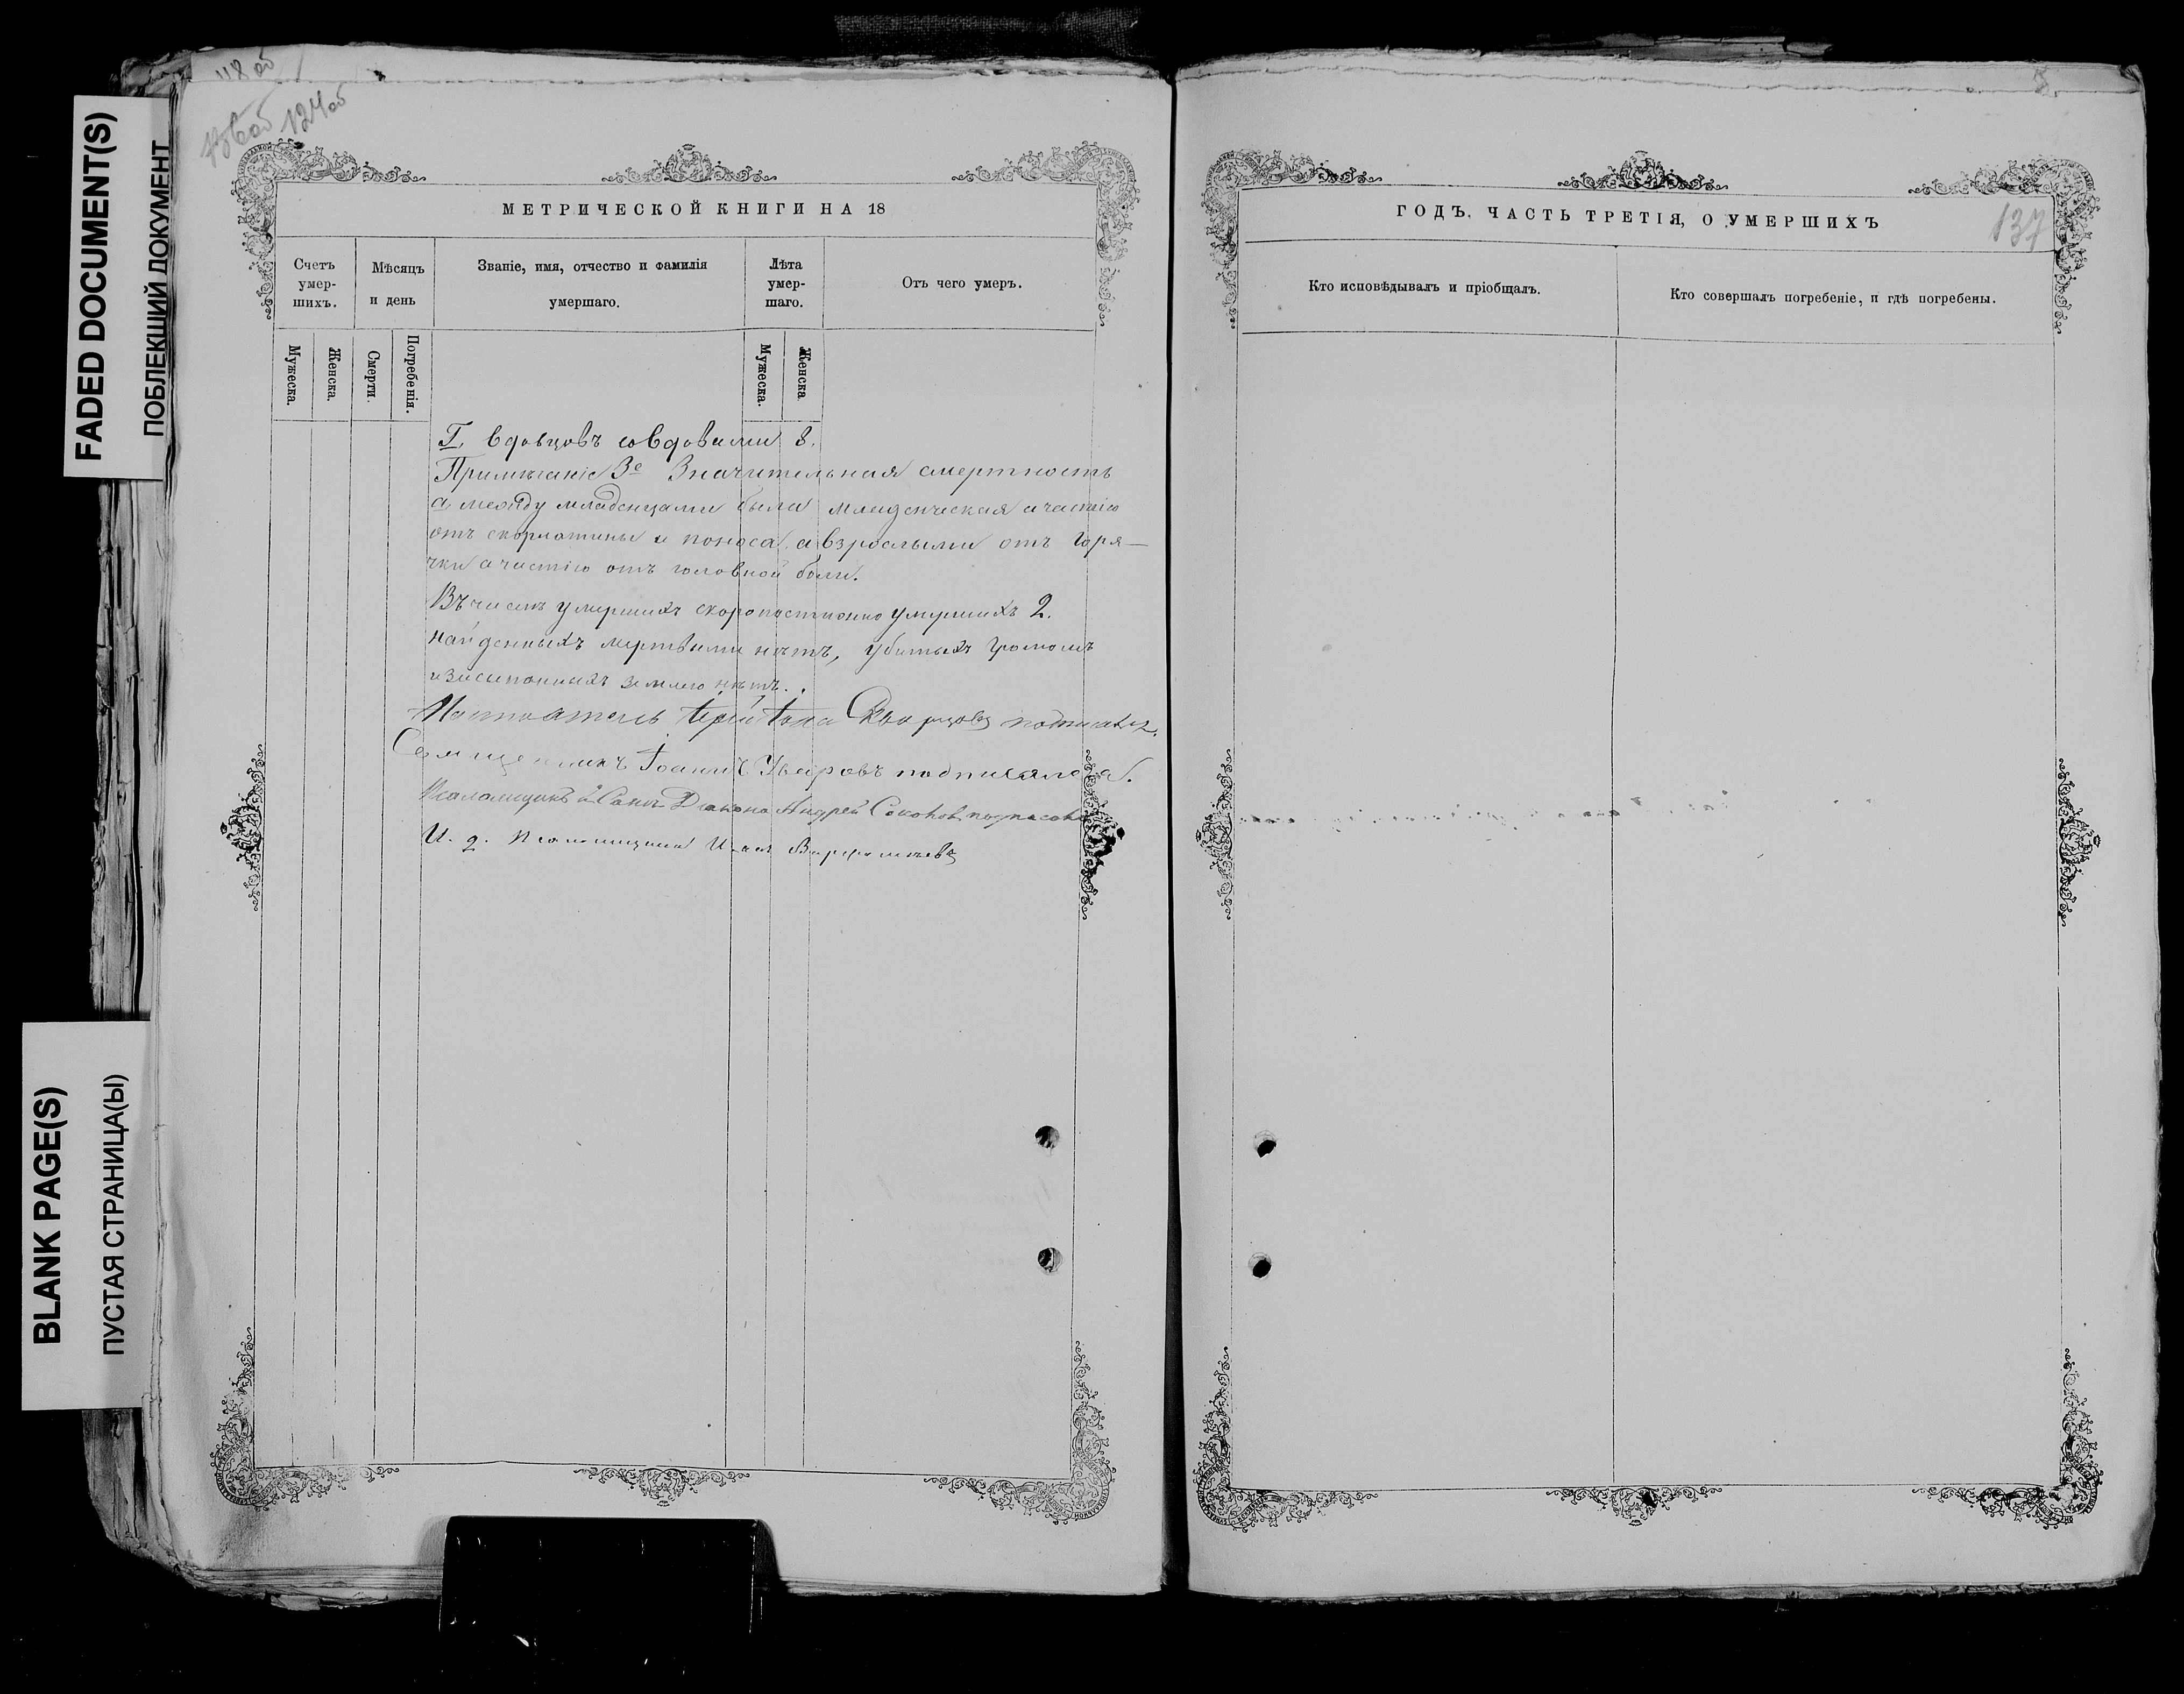 FADED DOCUMENT(S)
ПОБЛЕКШИЙ ДОКУМЕНТ
BLANK PAGE(S)
ПУСТАЯ СТРАНИЦА(Ы)
118 об
136 об 124 об
МЕТРИЧЕСКОЙ КНИГИ НА 18
Счетъ умер-шихъ.
Мѣсяцъ и день
Званіе, имя, отчество и фамилія умершаго.
Лѣта умер-шаго.
Отъ чего умеръ.
Мужеска.
Женска.
Смерти.
Погребенія.
Мужеска.
Женска
Г, вдовцовъ совдовами 8.
Примѣчаніе 3е Значительная смертность
а, между младенцами была младенческая а частію
отъ скорлатины и поноса, а взрослыми отъ горя—
чки а частію отъ головной боли.
Въ числѣ умершихъ скоропостижно умершихъ 2.
найденныхъ мертвыми нѣтъ, убитыхъ громомъ
и засипанныхъ землею нѣтъ.
Настоятель Іерей Скворцовъ подписался.
Священникъ Іоаннъ Уваровъ подписался.
Псаломщикъ въ Санѣ Діакона Андрей Соколов подписался
И. д. Псаломщика Иван
ГОДЪ, ЧАСТЬ ТРЕТІЯ, О УМЕРШИХЪ
137
Кто исповѣдывалъ и пріобщалъ.
Кто совершалъ погребеніе, и гдѣ погребены.